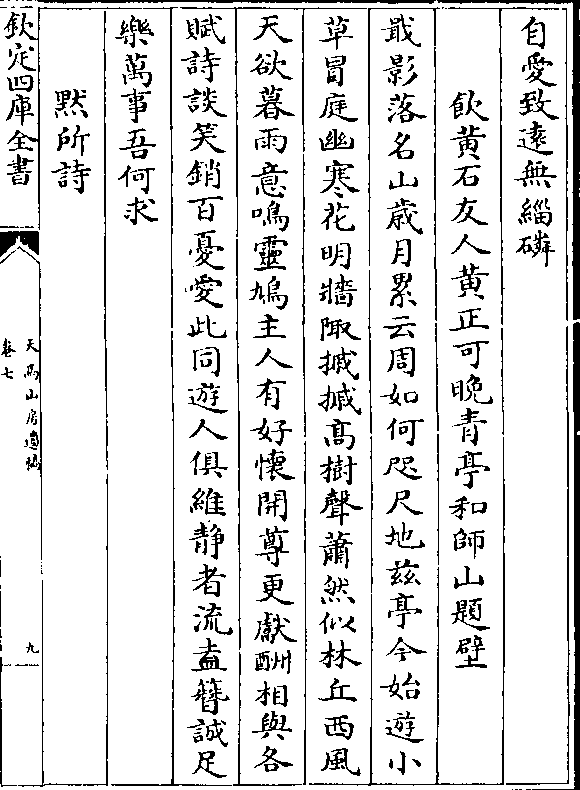 自愛致遠無緇磷
飲黃石友人黃正可晩青亭和師山題壁
戢影落名山歲月累云周如何咫尺地兹亭今始遊小
草冒庭幽寒花明牆陬摵摵髙樹聲蕭然似林丘西風
天欲暮雨意鳴靈鳩主人有好懷開尊更獻酬相與各
賦詩談笑銷百憂愛此同遊人俱維静者流盍簮誠足
樂萬事吾何求
默所詩
欽定四庫全書
天馬山房遺稿
卷七
九